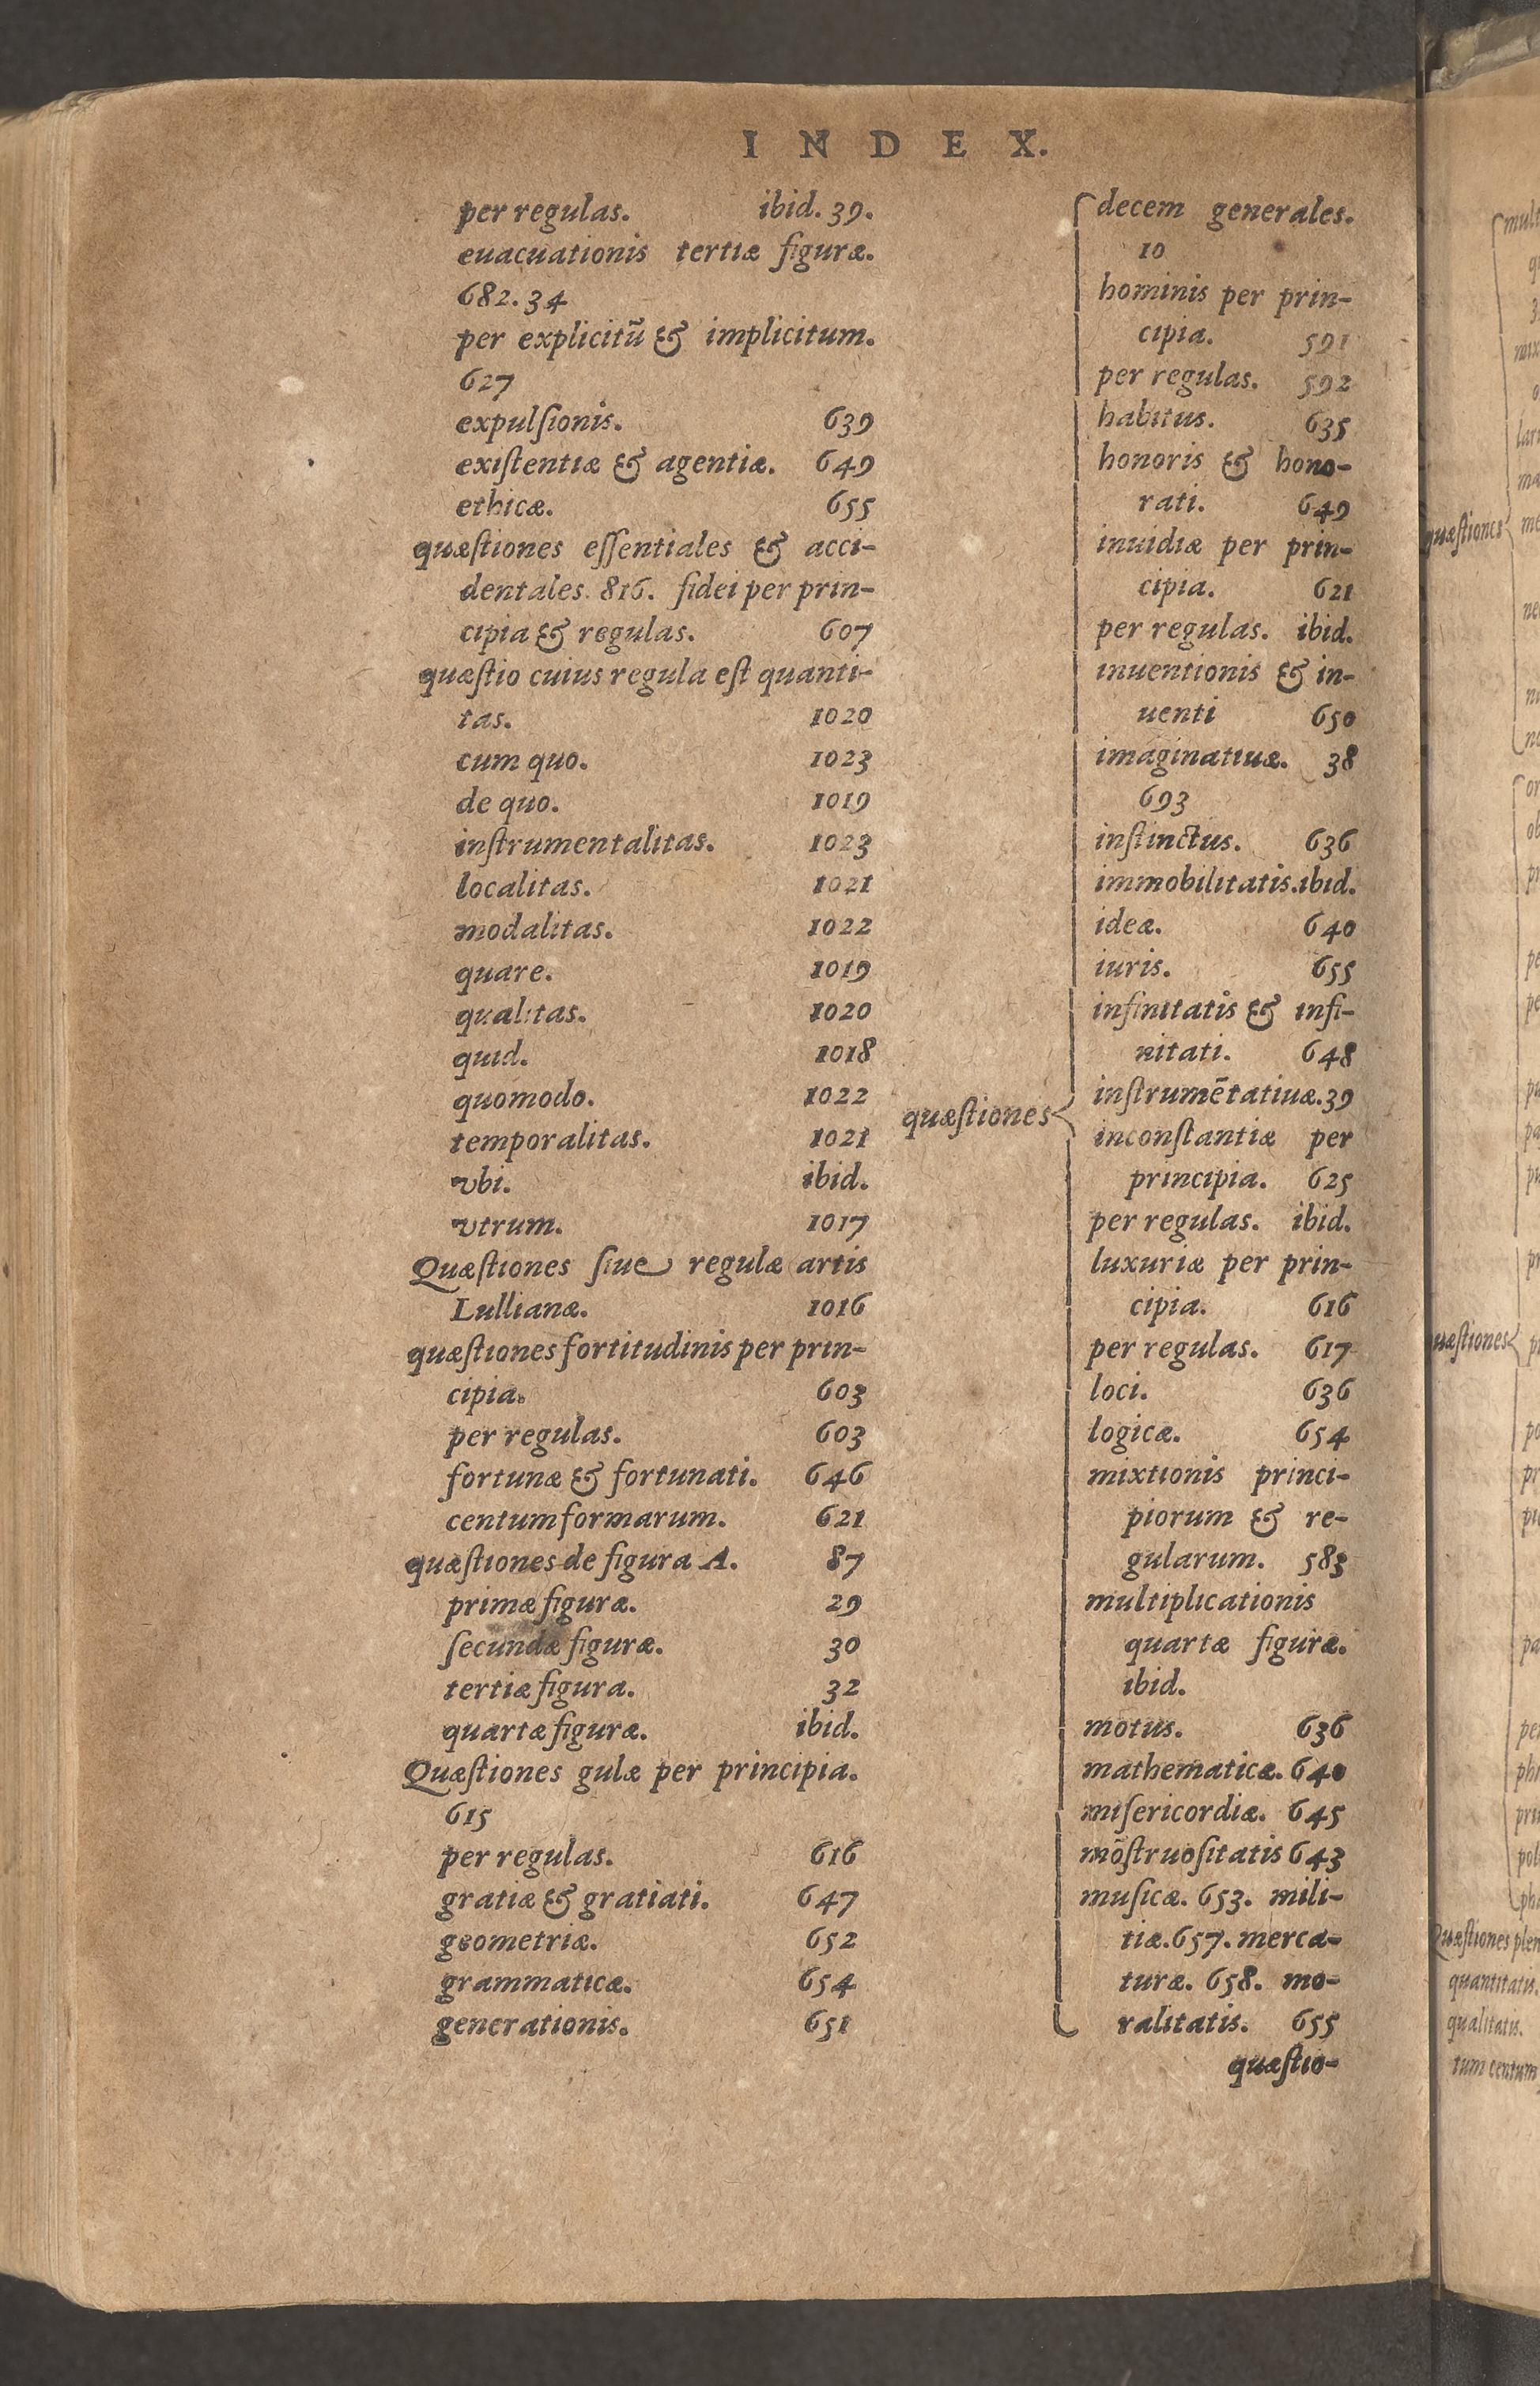 INDEX.
per regulas. ibid. 39.
euacuationis tertiæ figuræ.
682. 34
per explicitũ & implicitum.
627
expulſionis. 639
exiſtentiæ & agentiæ. 649
ethicæ. 655
quæſtiones eſſentiales & acci-
dentales. 816. fidei per prin-
cipia & regulas. 607
quæſtio cuius regula eſt quanti-
tas. 1020
cum quo. 1023
de quo. 1019
inſtrumentalitas. 1023
localitas. 1021
modalitas. 1022
quare. 1019
qualitas. 1020
quid. 1018
quomodo. 1022
temporalitas. 1021
vbi. ibid.
vtrum. 1017
Quæſtiones ſiue regulæ artis
Lullianæ. 1016
quæſtiones fortitudinis per prin-
cipia. 603
per regulas. 603
fortunæ & fortunati. 646
centum formarum. 621
quæſtiones de figura A. 87
primæ figuræ. 29
ſecundæ figuræ. 30
tertiæ figura. 32
quartæ figuræ. ibid.
Quæſtiones gulæ per principia.
615
per regulas. 616
gratiæ & gratiati. 647
geometriæ. 652
grammaticæ. 654
generationis. 651
quæſtiones
decem generales.
10
hominis per prin-
cipia. 591
per regulas. 592
habitus. 635
honoris & hono-
rati. 649
inuidiæ per prin-
cipia. 621
per regulas. ibid.
inuentionis & in-
uenti 650
imaginatiuæ. 38
693
inſtinctus. 636
immobilitatis. ibid.
ideæ. 640
iuris. 655
infinitatis & infi-
nitati. 648
inſtrumẽtatiuæ. 39
inconſtantiæ per
principia. 625
per regulas. ibid.
luxuriæ per prin-
cipia. 616
per regulas. 617
loci. 636
logicæ. 654
mixtionis princi-
piorum & re-
gularum. 583
multiplicationis
quartæ figuræ.
ibid.
motus. 636
mathematicæ. 640
miſericordiæ. 645
mõſtruoſitatis 643
muſicæ. 653. mili-
tiæ. 657. merca-
turæ. 658. mo-
ralitatis. 655
quæſtio-
quæſtiones
Quæſtiones
quantitatis.
qualitatis.
tum centum